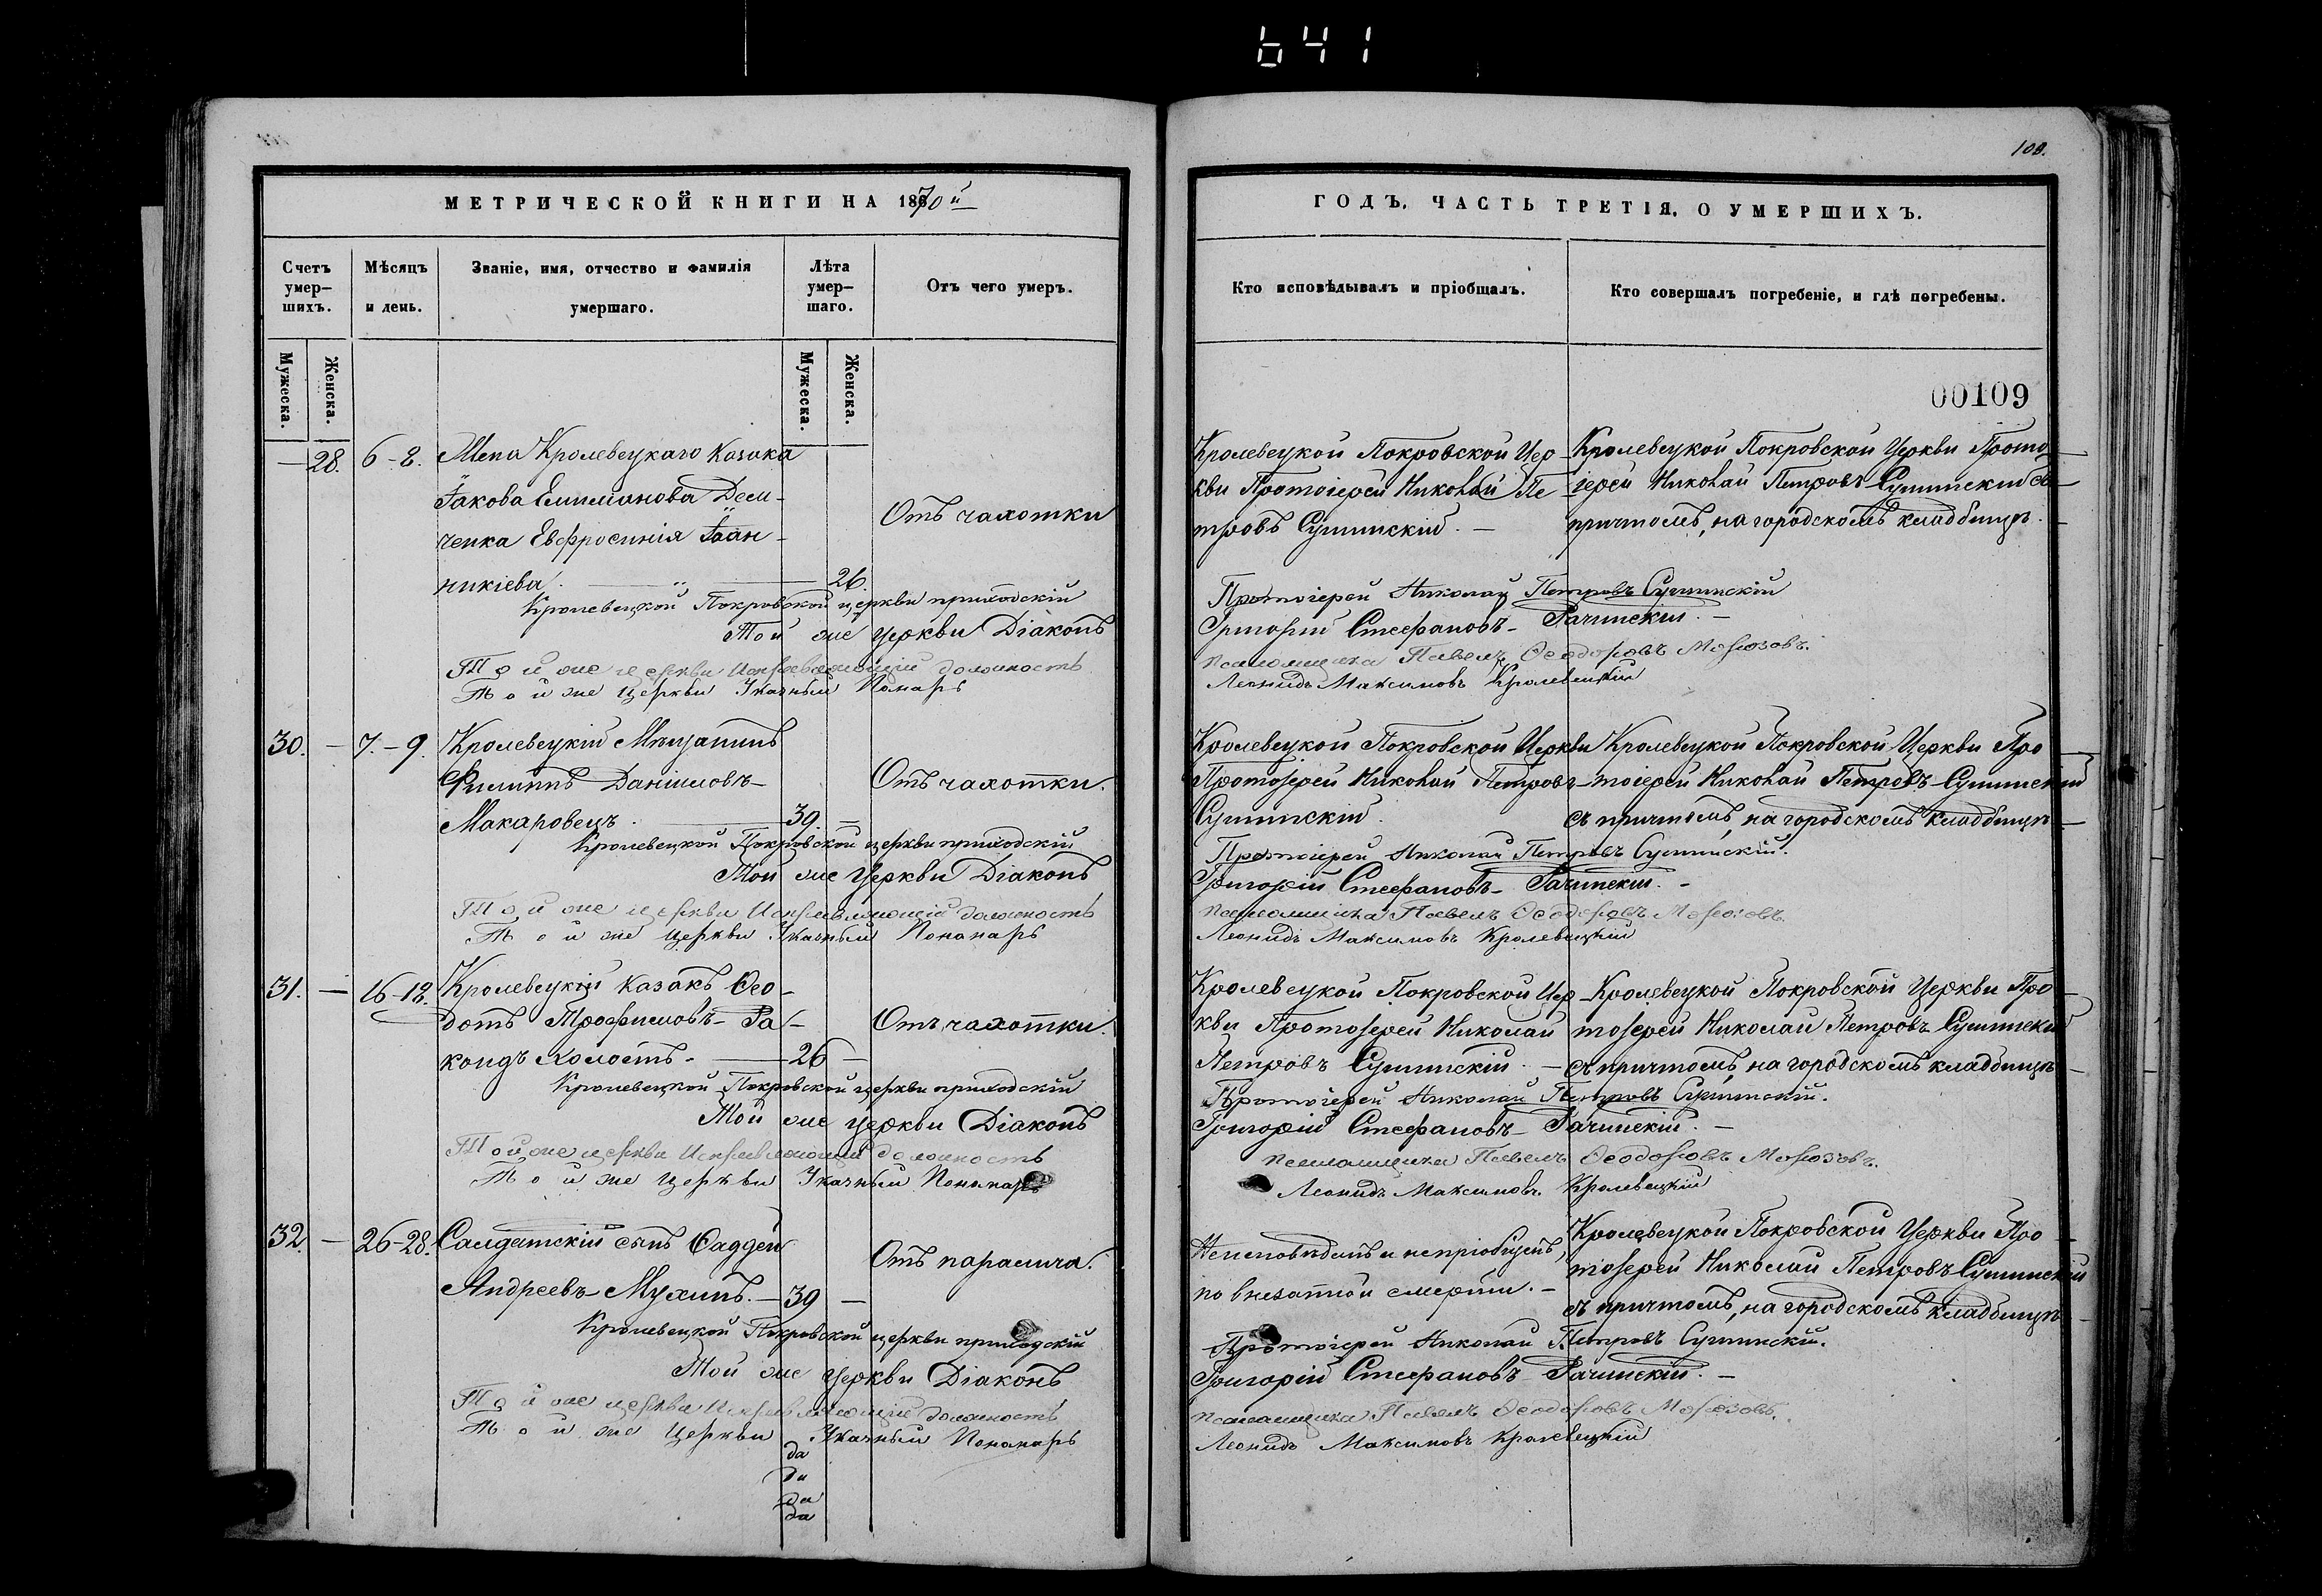 641
108.
МЕТРИЧЕСКОЙ КНИГИ НА 1870й
Счетъ умер-шихъ.
Мѣсяцъ и день.
Званіе, имя, отчество и фамилія умершаго.
Лѣта умер-шаго.
Отъ чего умеръ.
Мужеска.
Женска.
Мужеска.
Женска.
— 28. 6-8. Жена Кролевецкаго Казака
Іакова Емиліанова Дем-
ченка Евфросинія Іоан-
никіева. 26
Отъ чахотки
Кролевецкой Покровской церкви приходскій
Той же церкви Діаконъ
Той же церкви Исправляющій должность
Той же Церкви Указный Пономарь
30. — 7.-9. Кролевецкій Мѣщанинъ
Филиппъ Даніиловъ
Макаровецъ. 39. —
Отъ чахотки.
Кролевецкой Покровской церкви приходскій
Той же Церкви Діаконъ
Той же церкви Исправляющій должность
Той же Церкви Указный Пономарь
31. — 16-18. Кролевецкій казакъ Ѳео-
дотъ Трофимовъ
холостъ. 26 —
Отъ чахотки.
Кролевецкой Покровской церкви приходскій
Той же церкви Діаконъ
Той же церкви Исправляющій должность
Той же Церкви Указный Пономарь
32. — 26-28. Салдатскій сынъ Ѳаддей
Андреевъ Мухинъ. — 39 —
Отъ паралича.
Кролевецкой Покровской церкви приходскій
Той же церкви Діаконъ
Той же церкви Исправляющій должность
Той же Церкви Указный Пономарь
да
да
да
да
ГОДЪ. ЧАСТЬ ТРЕТІЯ. О УМЕРШИХЪ.
Кто исповѣдывалъ и пріобщалъ.
Кто совершалъ погребеніе, и гдѣ погребены.
00109
Кролевецкой Покровской Цер-
кви Протоіерей Николай Пе-
тровъ Сушинскій. —
Кролевецкой Покровской Церкви Прото-
іерей Николай Петровъ Сушинскій съ
причтомъ, на городскомъ кладбищѣ.
Протоіерей Николай Петровъ Сушинскій
Григорій Стефановъ Рачинскій. —
псаломщика Павелъ Ѳеодоровъ Морозовъ.
Леонидъ Максимовъ Кролевецкій
Кролевецкой Покровской Церкви
Протоіерей Николай Петровъ
Сушинскій.
Кролевецкой Покровской Церкви Про-
тоіерей Николай Петровъ Сушинскій
съ причтомъ, на городскомъ кладбищѣ
Протоіерей Николай Петровъ Сушинскій.
Григорій Стефановъ Рачинскій. —
псаломщика Павелъ Ѳеодоровъ Морозовъ
Леонидъ Максимовъ Кролевецкій
Кролевецкой Покровской Цер-
кви Протоіерей Николай
Петровъ Сушинскій. —
Кролевецкой Покровской Церкви Про-
тоіерей Николай Петровъ Сушинскій
съ причтомъ, на городскомъ кладбищѣ
Протоіерей Николай Петровъ Сушинскій.
Григорій Стефановъ Рачинскій. —
псаломщика Павелъ Ѳеодоровъ Морозовъ.
Леонидъ Максимовъ Кролевецкій
Неисповѣданъ и непріобщенъ,
по внезапной смерти. —
Кролевецкой Покровской Церкви Про-
тоіерей Николай Петровъ Сушинскій
съ причтомъ, на городскомъ кладбищѣ
Протоіерей Николай Петровъ Сушинскій.
Григорій Стефановъ Рачинскій. —
псаломщика Павелъ Ѳеодоровъ Морозовъ.
Леонидъ Максимовъ Кролевецкій